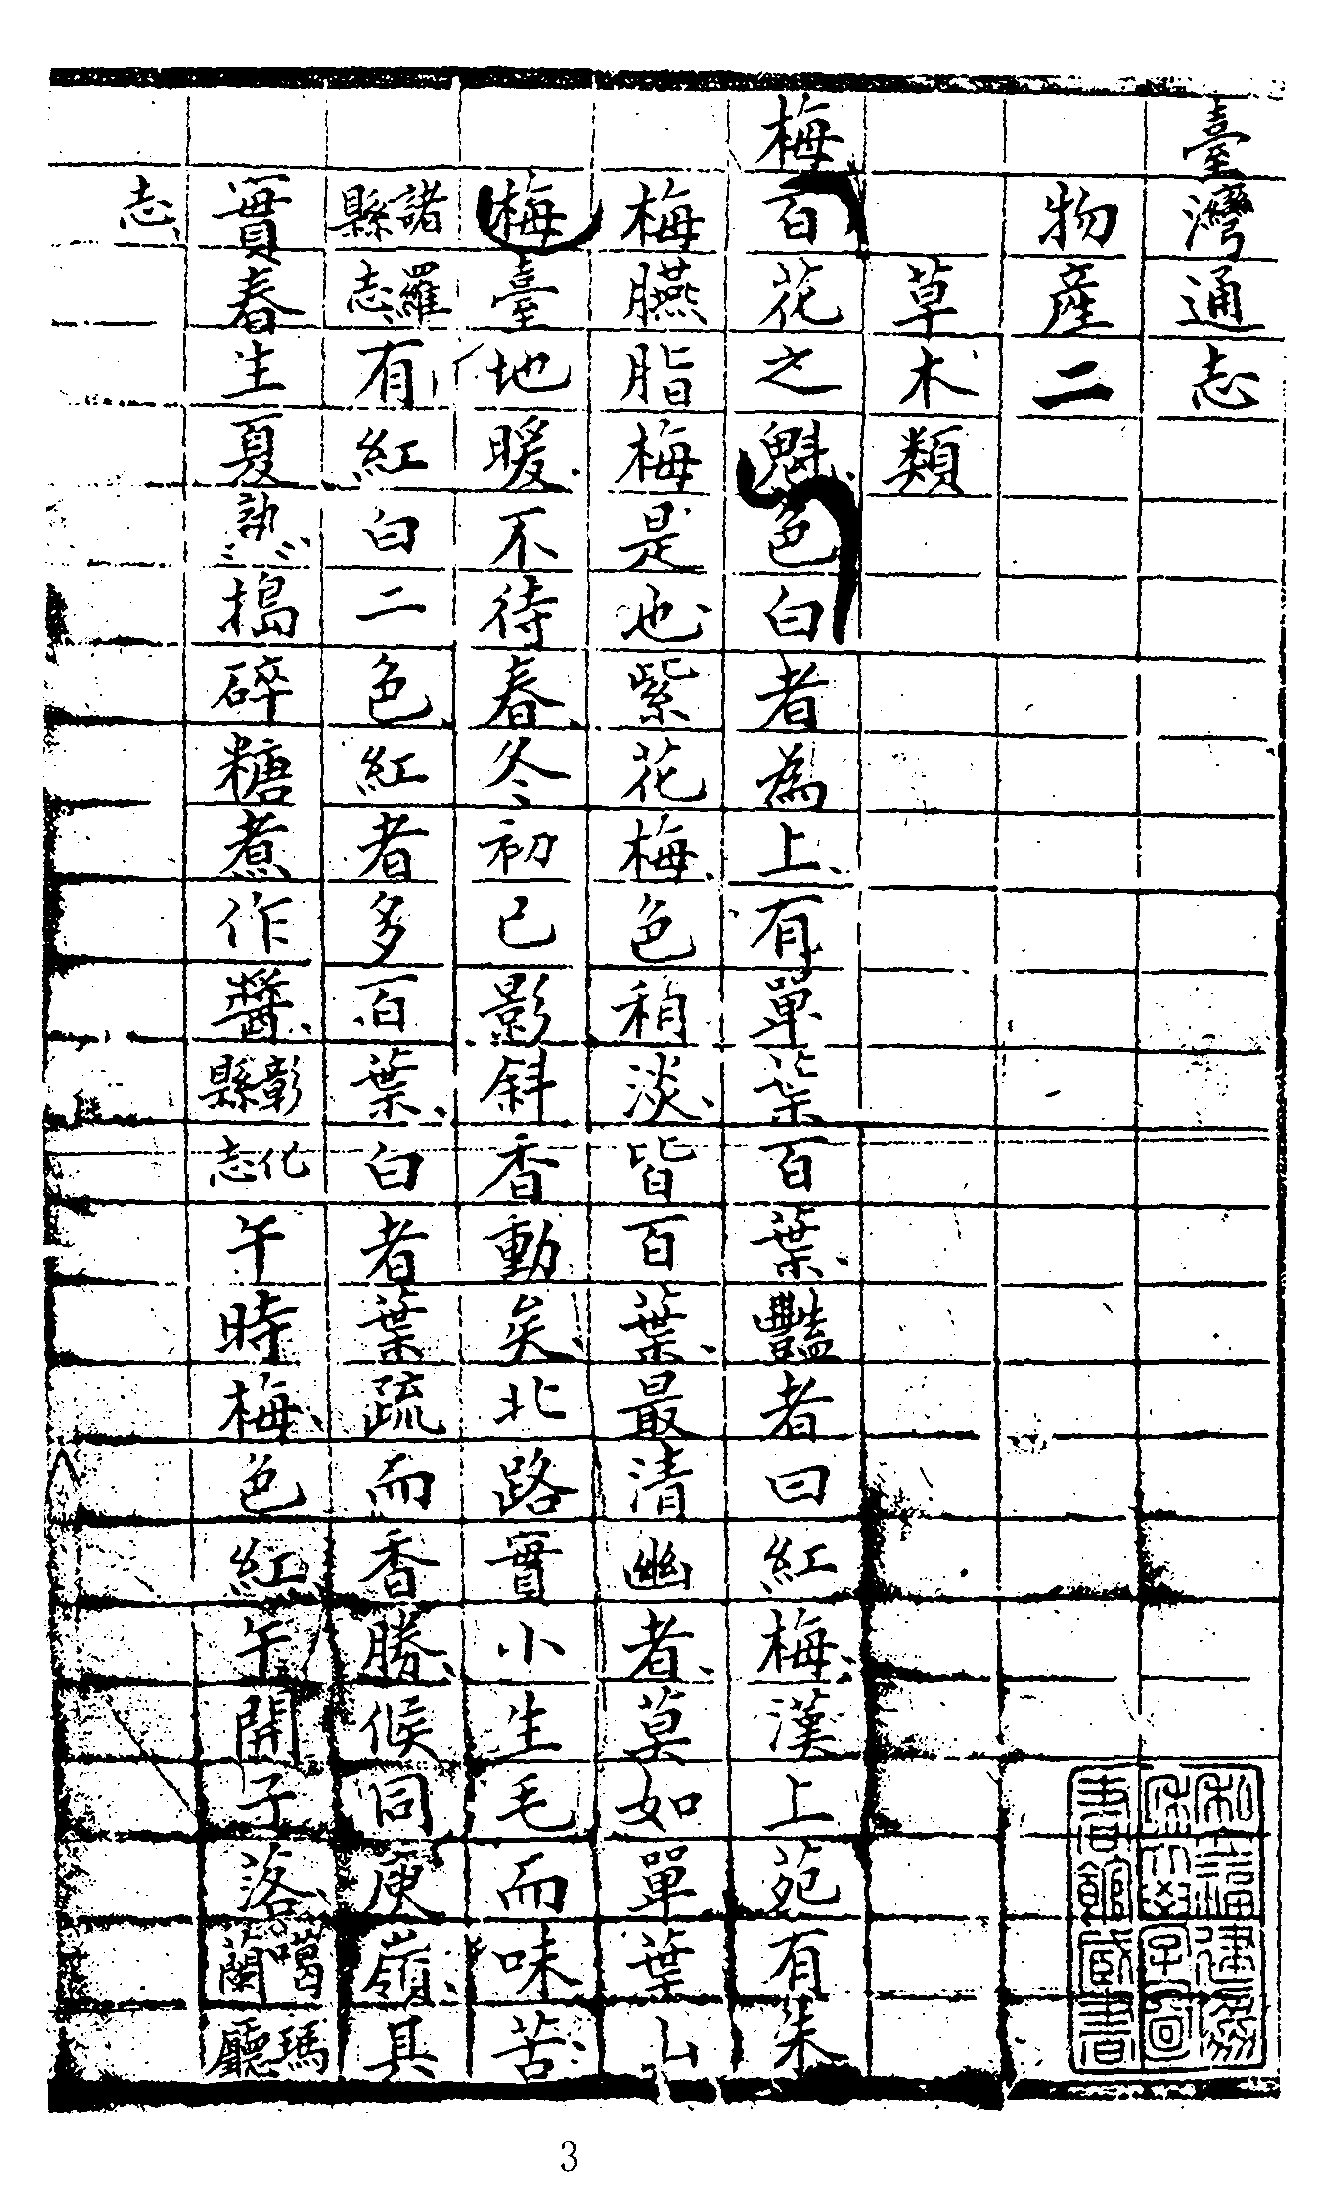 臺灣通志
物產二
草木類
梅百花之魁色白者為上有單葉百葉豔者曰紅梅漢上苑有朱
梅臙脂梅是也紫花梅色稍淡皆百葉最清幽者莫如單葉山
梅臺地暖不待春冬初已影斜香動矣北路實小生毛而味苦
諸羅縣志有紅白二色紅者多百葉白者葉疏而香勝候同庾嶺其
實春生夏熟搗碎糖煮作醬彰化縣志午時梅色紅午開子落噶瑪蘭廳
志
私立福建協
和大學圖
書館藏書
3